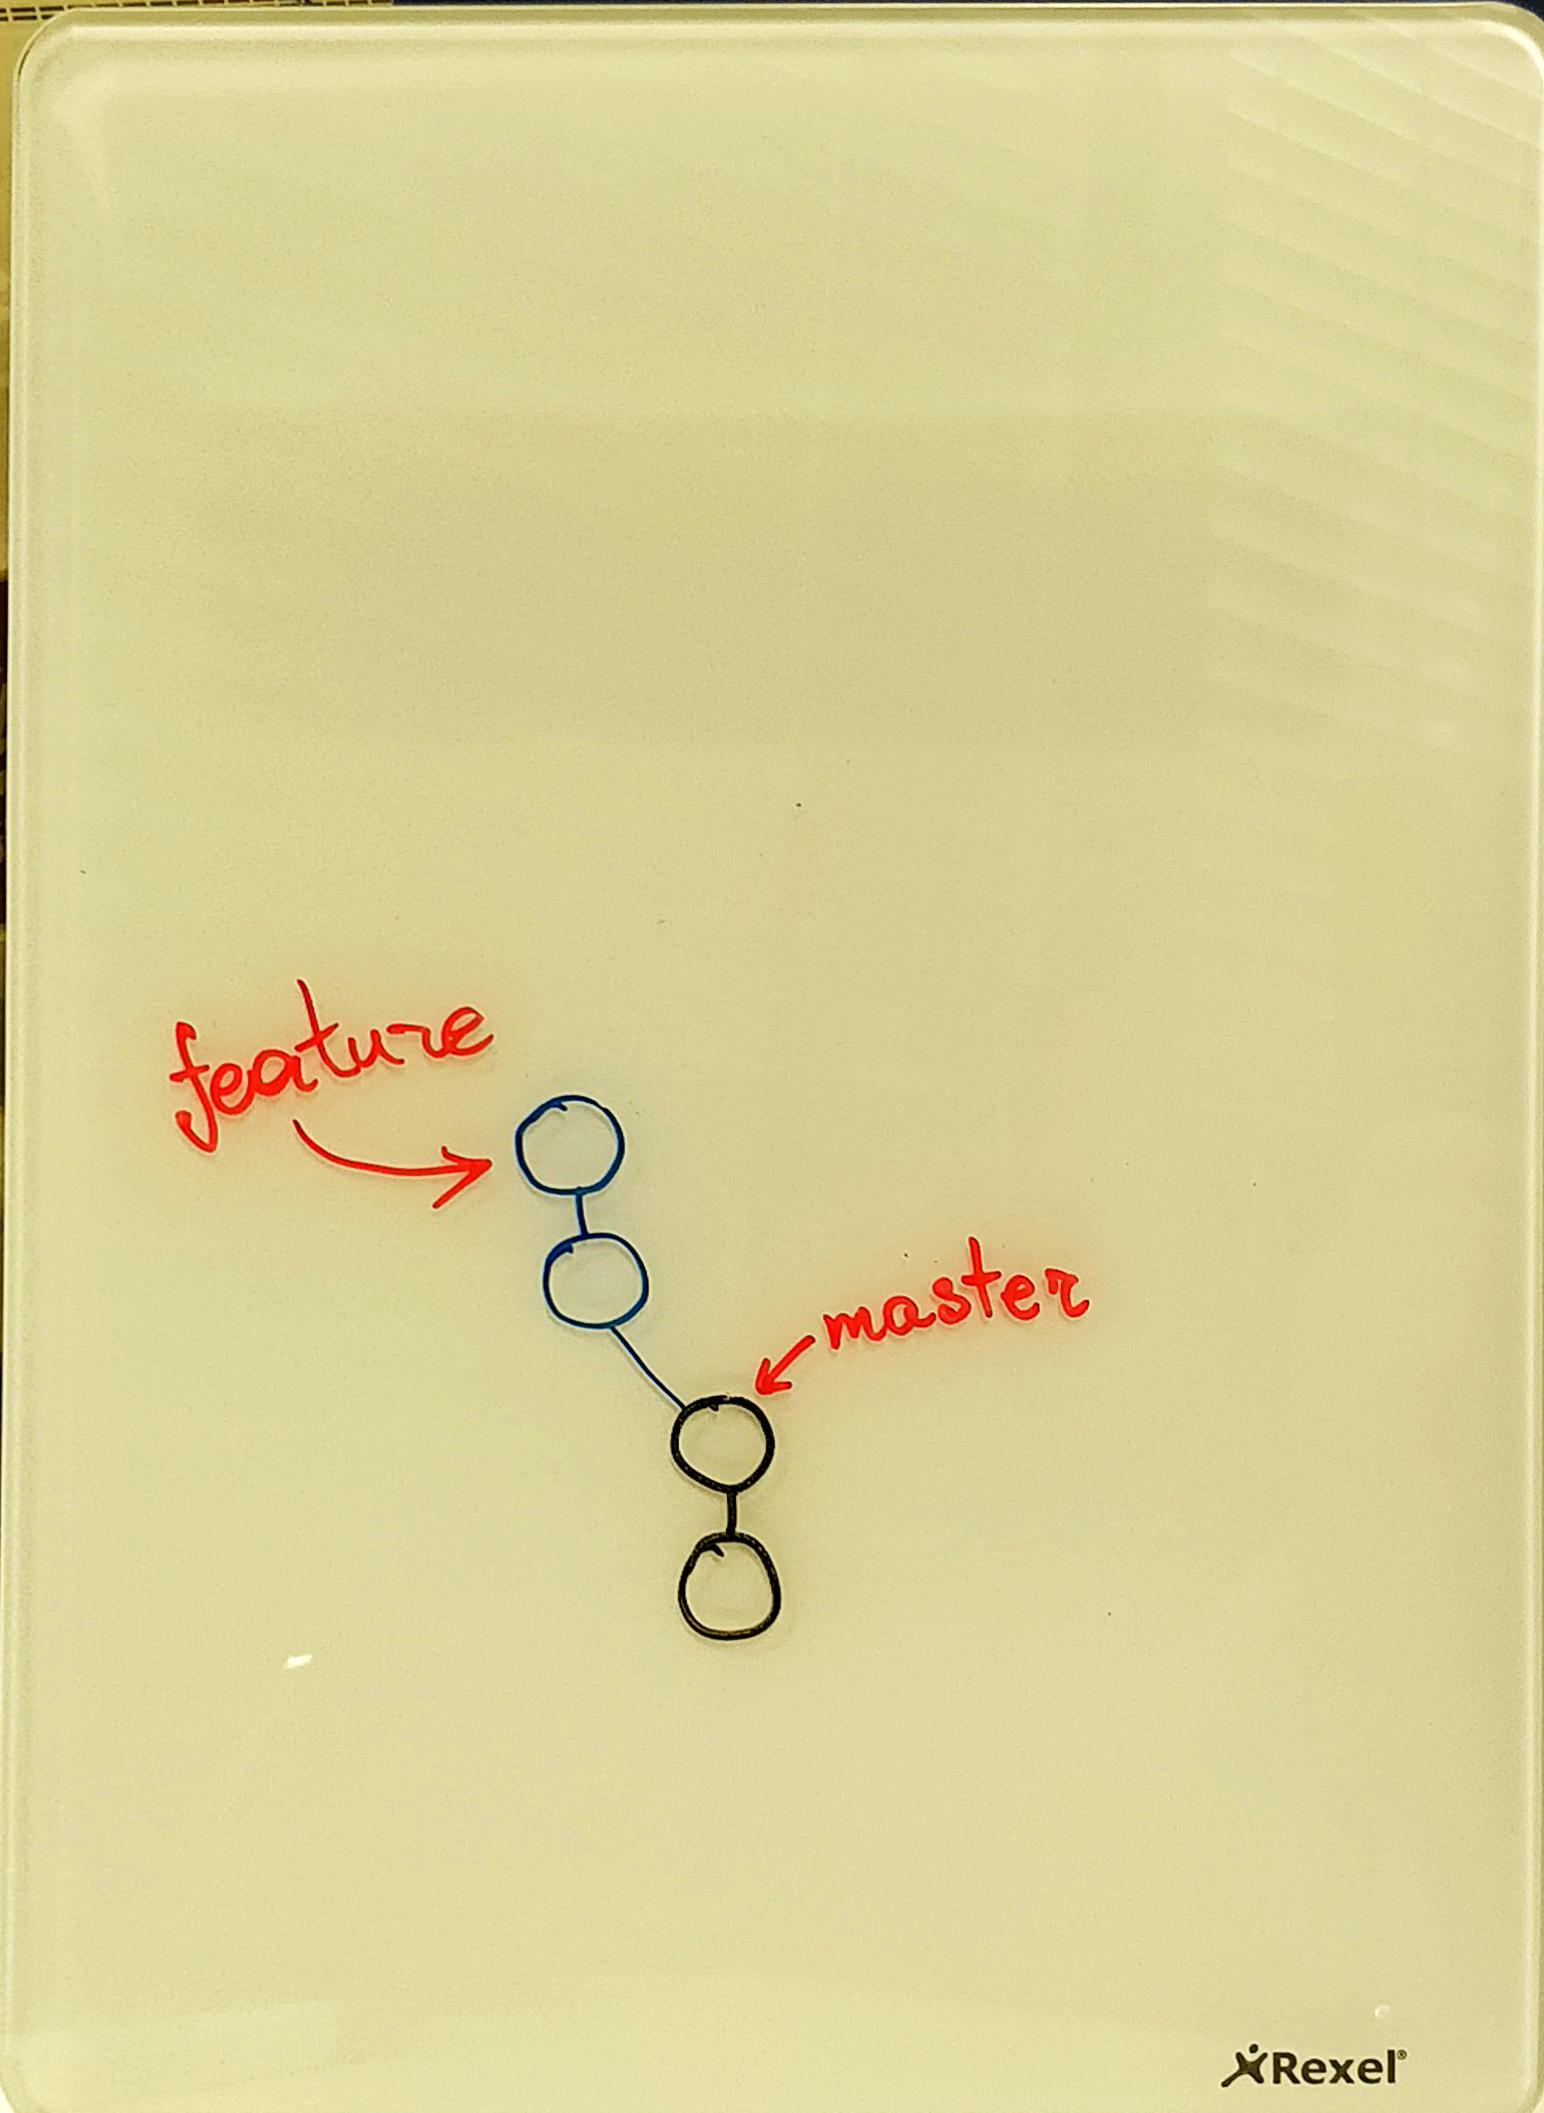 feature
master
Rexel®